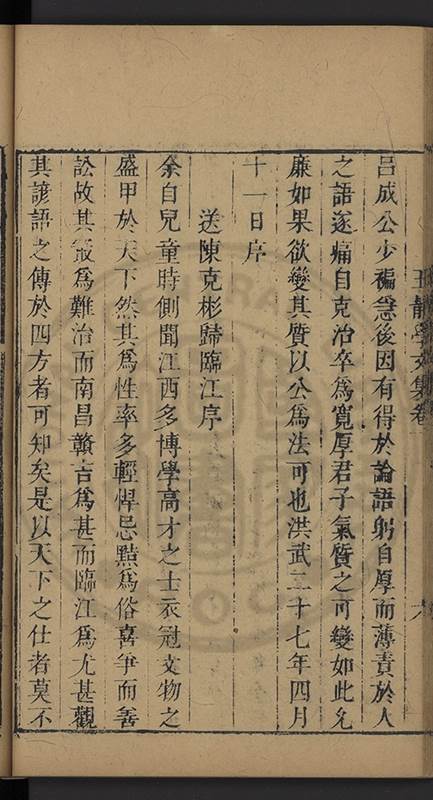 王靜學文集卷
六
呂成公少褊急後因有得於論語躬自厚而薄責於人
之語遂痛自克治卒爲寬厚君子氣質之可變如此允
廉如果欲變其質以公爲法可也洪武三十七年四月
十一日序
送陳克彬歸臨江序
余自兒童時側聞江西多博學高才之士衣冠文物之
盛甲於天下然其爲性率多輕悍忌黠爲俗喜爭而善
訟故其
爲難治而南昌贛吉爲甚而臨江爲尤甚觀
其諺語之傳於四方者可知矣是以天下之仕者莫不